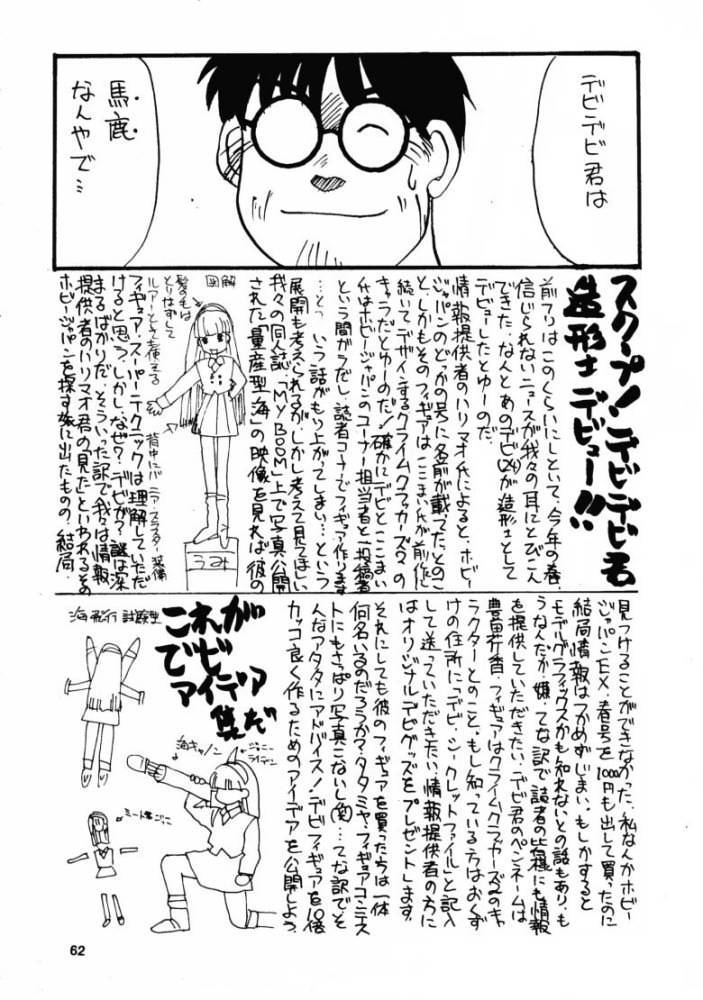 デビデビ君は
馬鹿
なんやで…
スクープ！デビデビ君
造形士デビュー!!
前フリはこのくらいにしといて、今年の春、
信じられないニュースが我々の耳にとびこん
できた‥なんとあのデビ(24)が造形士として
デビューしたとゆーのだ。
情報提供者のハリマオ氏によると、ホビー
ジャパンのどっかの号に名前が載ってたとのこ
と、しかもそのフィギュアは、ここまい氏が前作に
続いてデザインするクライムクラッカーズ2の
キャラだとゆーのだ！確かにデビとここまい
氏はホビージャパンのコーナー担当者と一投稿者
という間ガラだし、読者コーナーでフィギュア作ります
…とっ いう話がもり上がってしまい…という
展開も考えられるが、しかし考えて見てほしい
我々の同人誌、「MY BOOM」上で写真公開
された「量産型海」の映像を見れば彼の
図解
髪の毛は
とりはずして
ルアーとしても使える
背中にバーニア・スラスター装備
うみ
フィギュア・スーパーテクニックは理解していただ
けると思う。しかし、なぜ？デビが？謎は深
まるばかりだ。そういった訳で我々は情報
提供者のハリマオ君の見た！といわれるその
ホビージャパンを探す旅に出たものの、結局
見つけることができなかった、私なんかホビー
ジャパンEX.春号を1000円も出して買ったのに
結局情報はつかめずじまい、もしかすると
モデルグラフィックスかも知れないとの話もあり、も
うなんだか嫌、てな訳で読者の皆様にも情報
を提供していただきたい、デビ君のペンネームは
豊田行香、フィギュアはクライムクラッカーズ2のキャ
ラクターとのこと、もし知っている方はおくず
けの住所に「デビ・シークレットファイル」と記入
して送っていただきたい、情報提供者の方に
はオリジナルデビグッズをプレゼントします。
それにしても彼のフィギュアを買った方は一体
何名いるのだろうか？タダミヤ・フィギュアコンテス
トにもさっぱり写真こないし(笑)…てな訳でそ
んなアナタにアドバイス！デビフィギュアを10倍
カッコ良く作るためのアイデアを公開しよう。
これが
でビ
アイデア
集だ
海飛行試験型
海キャノン
ジョニー
ライデン
ミートせんごこ
62